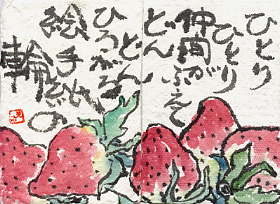 ひとり
ひとり
仲間がふえて
どんどん
ひろがる
絵手紙の
輪